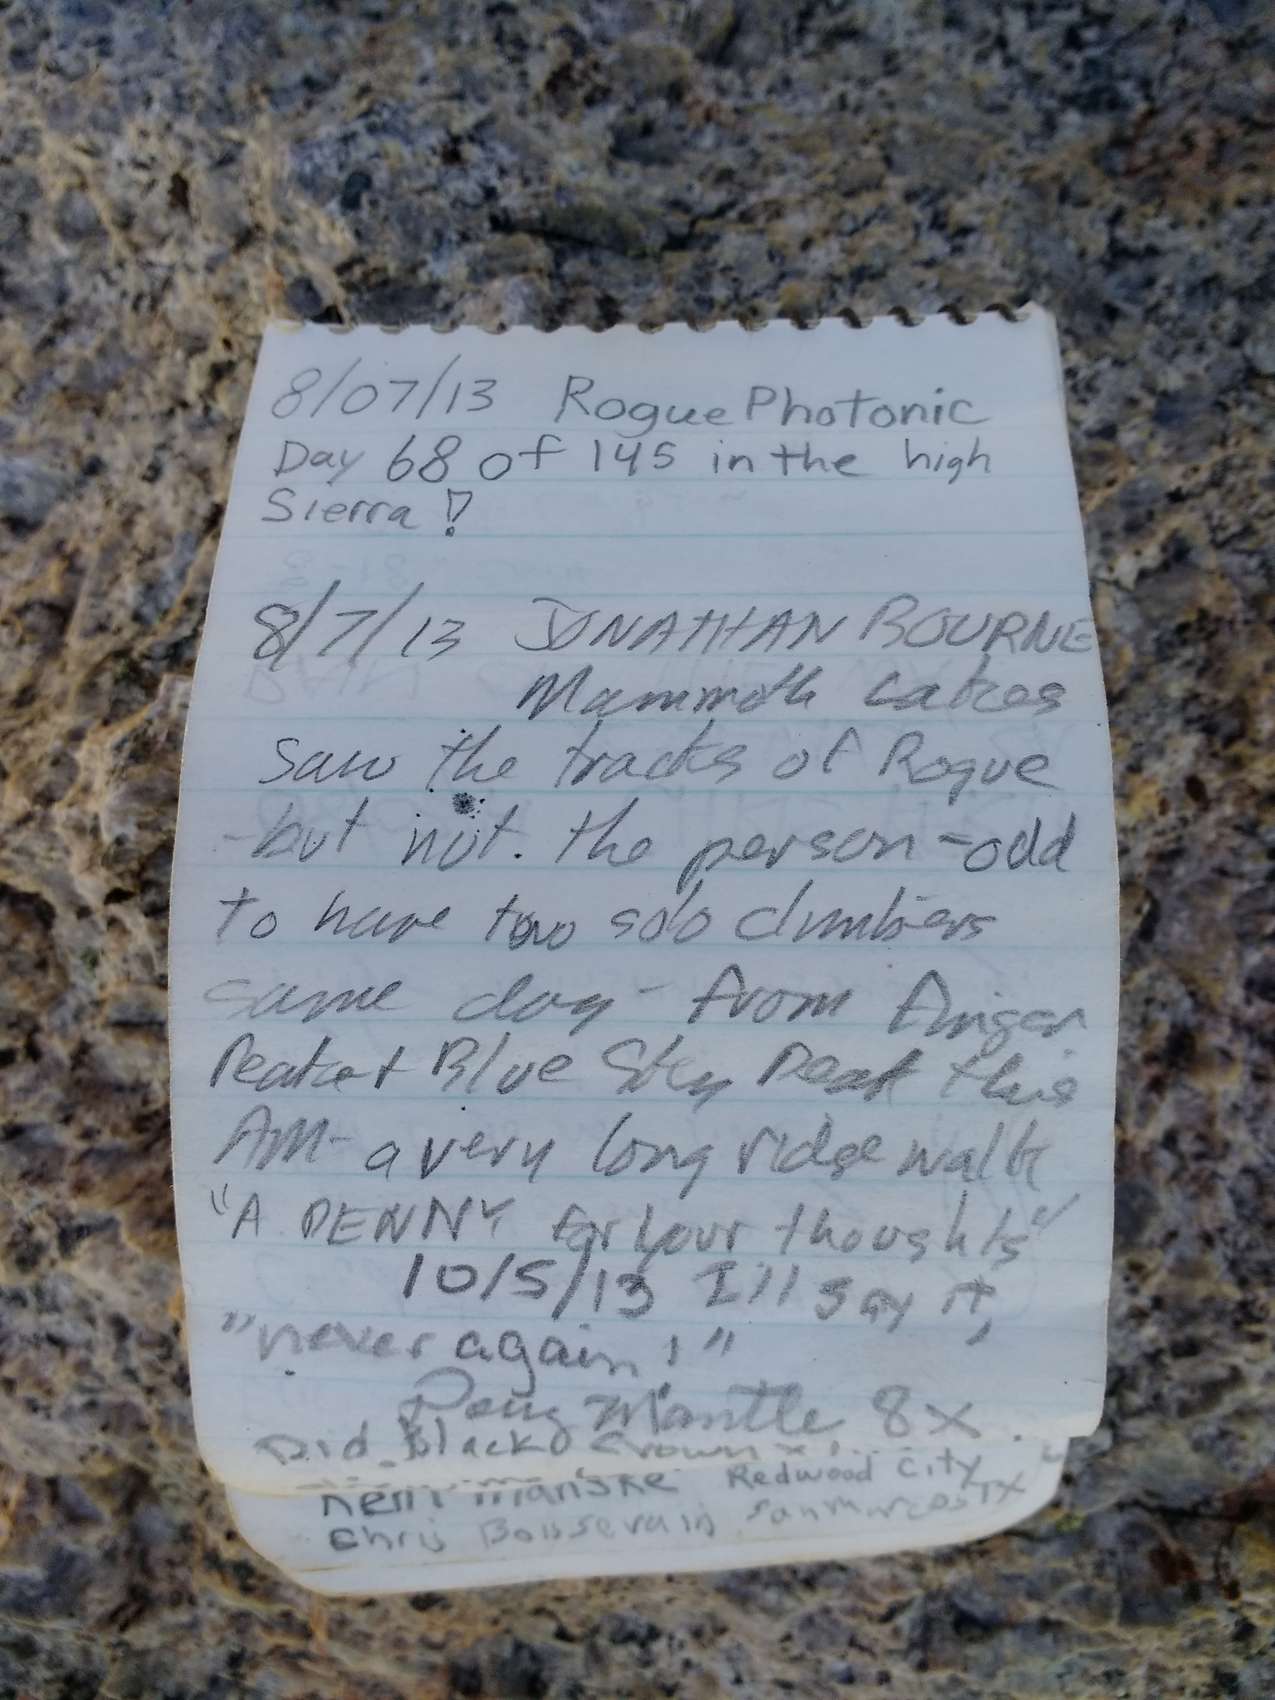 8/07/13 Rogue Photonic
Day 68 of 145 in the high
Sierra!
8/7/13 JONATHAN BOURNE
Mammoth Lakes
Saw the tracks of Rogue
-but not. the person - odd
to have two solo climbers
same day - from Finger
Peak + Blue Sky Peak this
AM - a very long ridge walk
"A PENNY for your thoughts"
10/5/13 I'll say it,
"never again!"
Doug Mantle 8x
Did Black Crown
Manske Redwood City
Chris Boissevain San Marcos TX